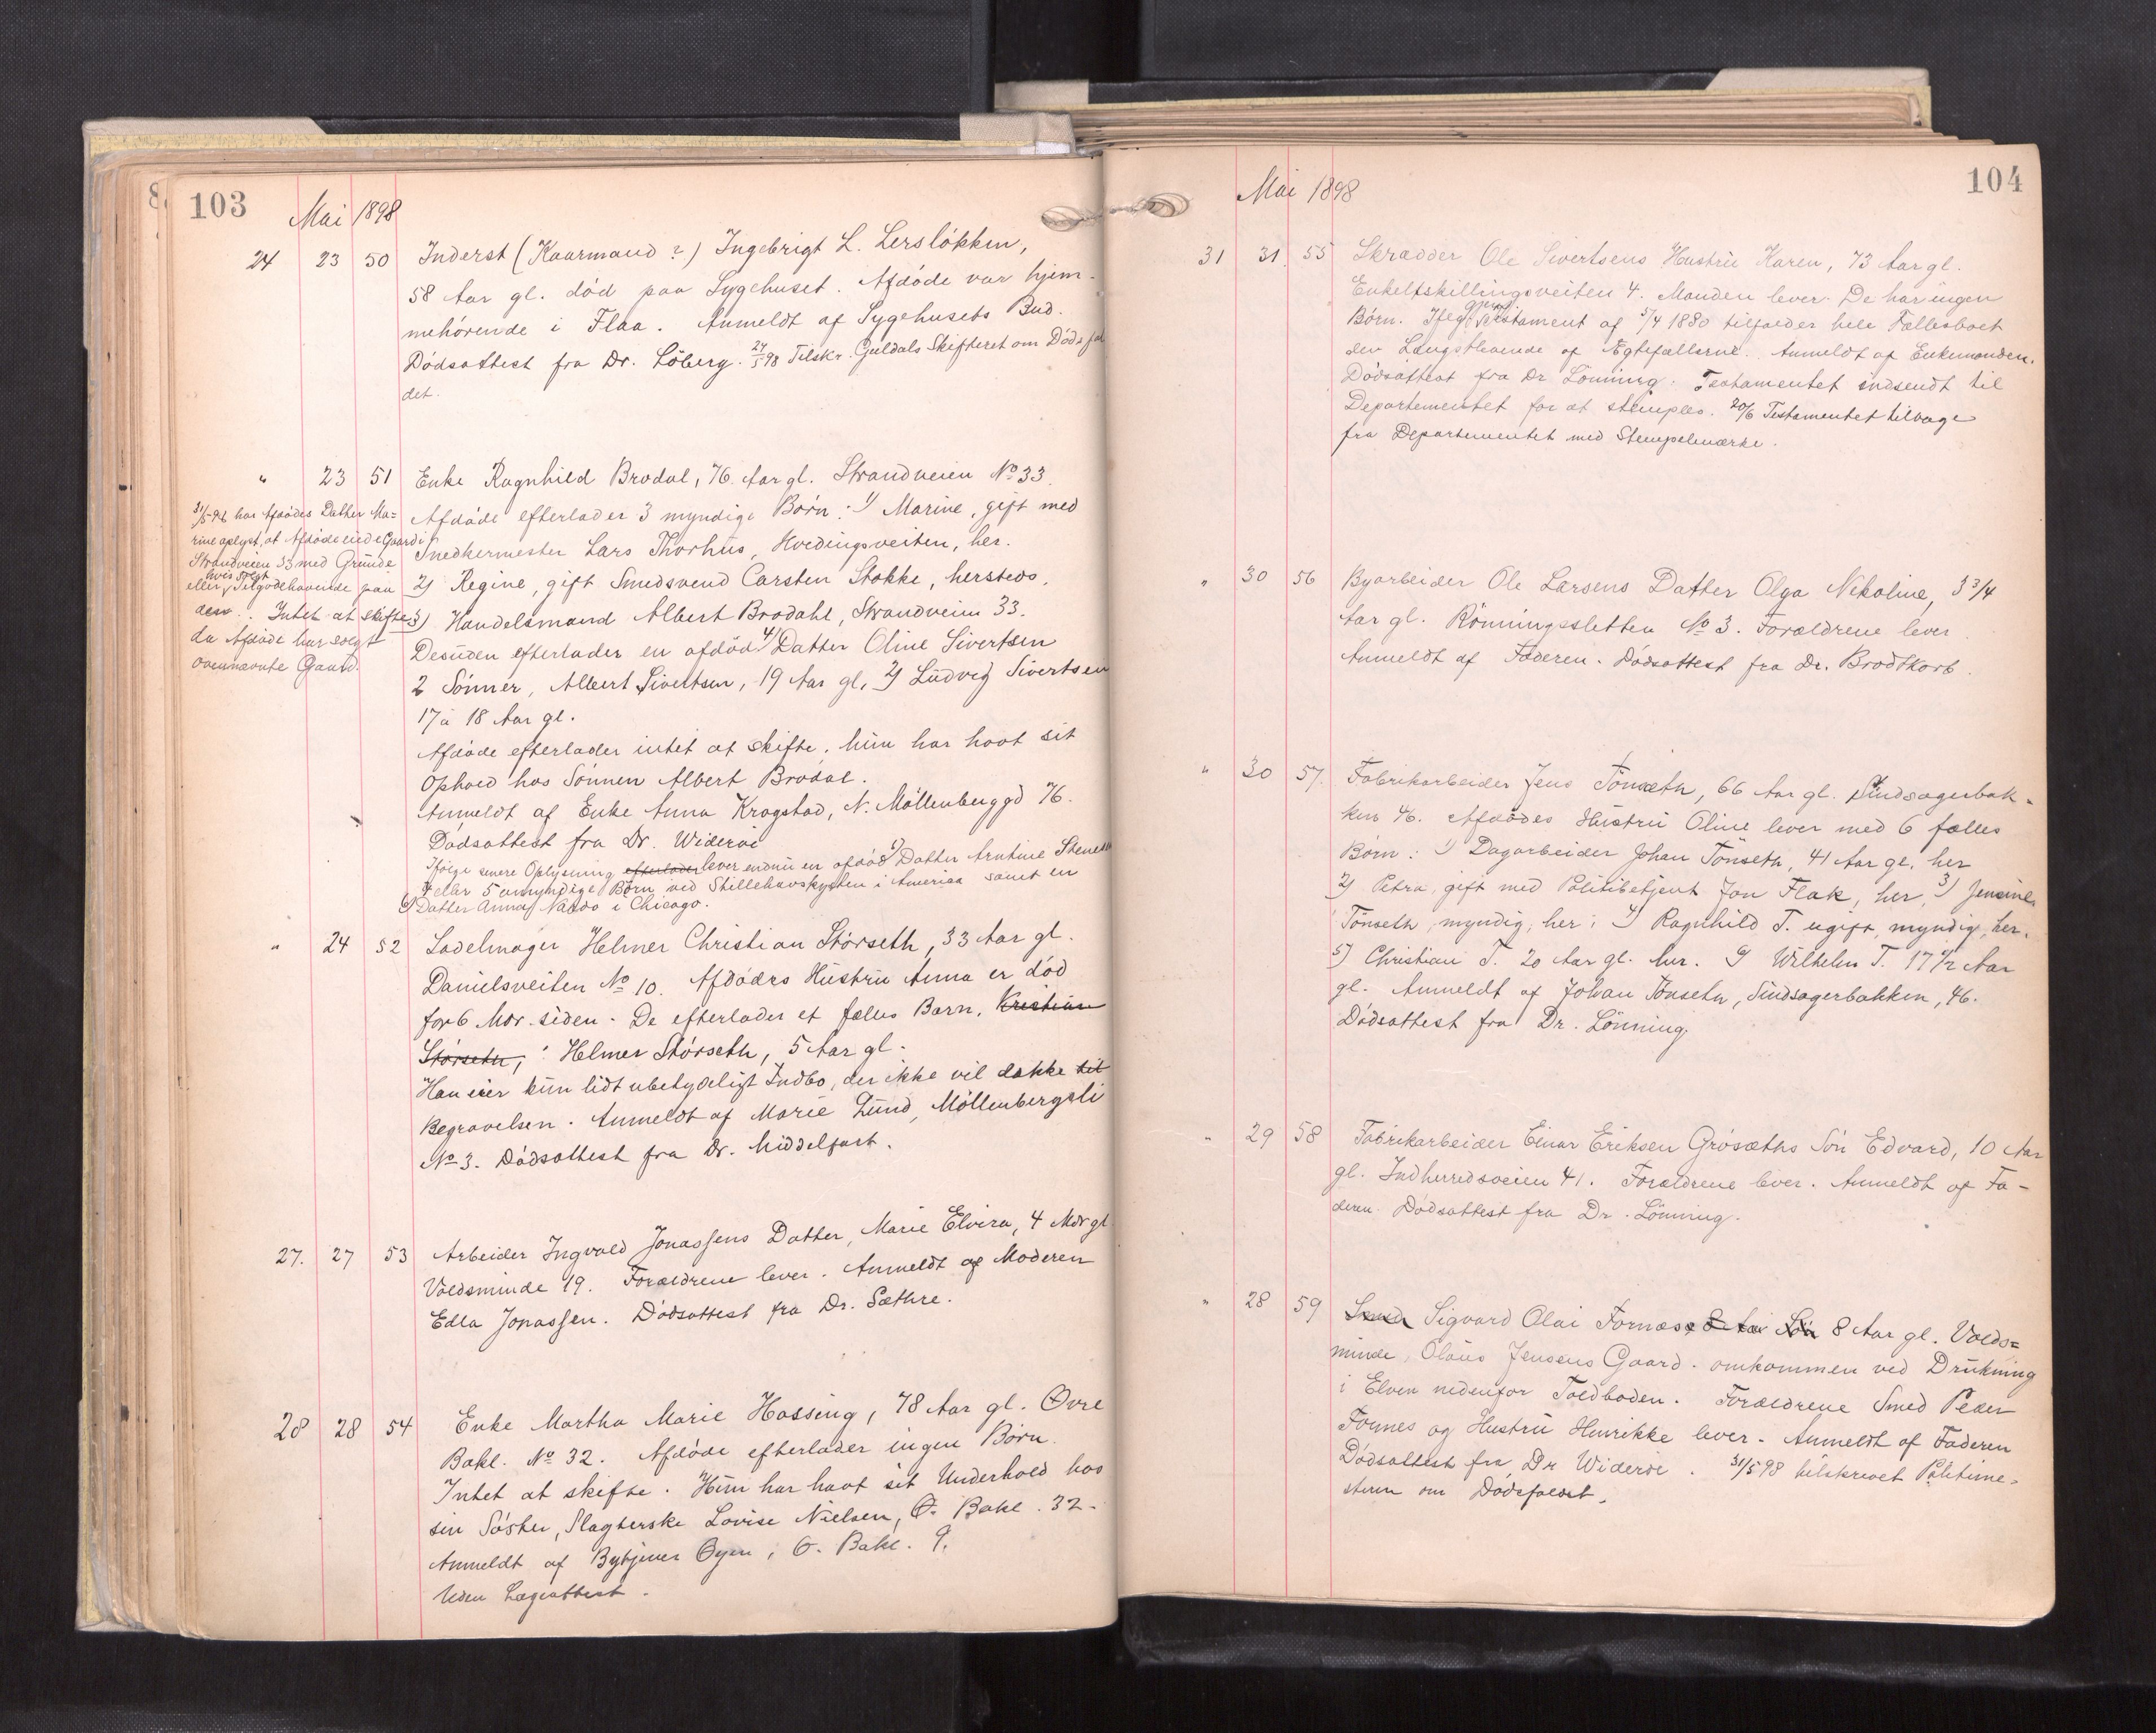 103
Mai 1898
24 23 50 Inderst (Kaarmand?) Ingebrigt L. Lersløkken,
58 Aar gl. død paa Sygehuset. Afdøde var hjem-
mehørende i Flaa. Anmeldt af Sygehusets Bud.
Dødsattest fra Dr. Løberg. 24/5 98 Tilskr. Guldals Skifteret om Dødsfal
det.
" 23 51 Enke Ragnhild Brodal, 76 Aar gl. Strandveien No 33.
Afdøde efterlader 3 myndige Børn: 1) Marine, gift med
Snedkermester Lars Thorhus, Hvedingsveiten, her.
2) Regine, gift Smedsvend Carsten Stokke, hersteds.
3) Handelsmand Albert Brodahl, Strandveien 33.
Desuden efterlader en afdød 4) Datter Oline Sivertsen
2 Sønner, Albert Sivertsen, 19 Aar gl, 2) Ludvig Sivertsen
17 à 18 Aar gl.
Afdøde efterlader intet at skifte, hun har havt sit
Ophold hos Sønnen Albert Brodal.
Anmeldt af Enke Anna Kragstad, N. Møllenberggd 76.
Dødsattest fra Dr. Widerøe
Ifølge senere Oplysning efterlader lever endnu en afdød 5) Datter Arntine
4 eller 5 umyndige Børn ved Stillehavskysten i Amerika samt en
6) Datter Anna Nardo i Chicago.
31/5-98 har Afdødes Datter Ma=
rine oplyst, at Afdøde eiede Gaard i
Strandveien 33 med Grunde
eller hvis solgt Tilgodehavende paa
den. Intet at skifte
da Afdøde har solgt
ovennævnte Gaard.
" 24 52 Sadelmager Helmer Christian Størseth, 33 Aar gl.
Danielsveiten No 10. Afdødes Hustru Anna er død
for 6 Mdr. siden. De efterlader et fælles Barn, Kristian
Størseth, : Helmer Størseth, 5 Aar gl.
Han eier kun lidt ubetydeligt Indbo, der ikke vil dække til
Begravelsen. Anmeldt af Marie Lund, Møllenbergsli
No 3. Dødsattest fra Dr. Middelfart.
27. 27 53 Arbeider Ingvald Jonassens Datter, Marie Elvira, 4 Mdr gl
Voldsminde 19. Forældrene lever. Anmeldt af Moderen
Edla Jonassen. Dødsattest fra Dr. Sæthre.
28 28 54 Enke Martha Marie Hassing, 78 Aar gl. Øvre
Bakl. No 32. Afdøde efterlader ingen Børn.
Intet at skifte. Hun har havt sit Underhold hos
sin Søster, Slagterske Lovise Nielsen, Ø. Bakl. 32.
Anmeldt af Bytjener Øyen, Ø. Bakl. 9.
Uden Lægeattest.
104
Mai 1898
31 31. 55 Skrædder Ole Sivertsens Hustru Karen, 73 Aar gl.
Enkeltskillingsveiten 4. Manden lever. De har ingen
Børn. Ifølge gjens. Testament af 5/4 1880 tilfalder hele Fællesboet
den Længstlevende af Ægtefællerne. Anmeldt af Enkemanden.
Dødsattest fra Dr Lønning. Testamentet indsendt til
Departementet for at stemples. 20/6 Testamentet tilbage
fra Departementet med Stempelmærke.
" 30 56 Byarbeider Ole Larsens Datter Olga Nekoline, 3 3/4
Aar gl. Rønningsletten No 3. Forældrene lever.
Anmeldt af Faderen. Dødsattest fra Dr. Brodtkorb.
" 30 57. Fabrikarbeider Jens Tønseth, 66 Aar gl. Sindsagerbak-
ken 46. Afdødes Hustru Oline lever med 6 fælles
Børn: 1) Dagarbeider Johan Tønseth, 41 Aar gl. her
2) Petra, gift med Politibetjent Jon Flak, her, 3) Jensine
Tønseth, myndig, her; 4) Ragnhild T. ugift, myndig, her.
5) Christian T. 20 Aar gl. her. 6) Wilhelm T. 17 1/2 Aar
gl. Anmeldt af Johan Tønseth, Sindsagerbakken, 46.
Dødsattest fra Dr. Lønning.
" 29 58 Fabrikarbeider Einar Eriksen Grøsæths Søn Edvard, 10 Aar
gl. Indherredsveien 41. Forældrene lever. Anmeldt af Fa-
deren. Dødsattest fra Dr. Lønning.
" 28 59 Sigvard Olai Fornæs 8 Aar gl. Volds=
minde, Olaus Jensens Gaard. omkommen ved Drukning
i Elven nedenfor Toldboden. Forældrene Smed Peder
Fornes og Hustru Henrikke lever. Anmeldt af Faderen
Dødsattest fra Dr Widerøe. 31/5 98 tilskrevet Politime-
steren om Dødsfaldet.